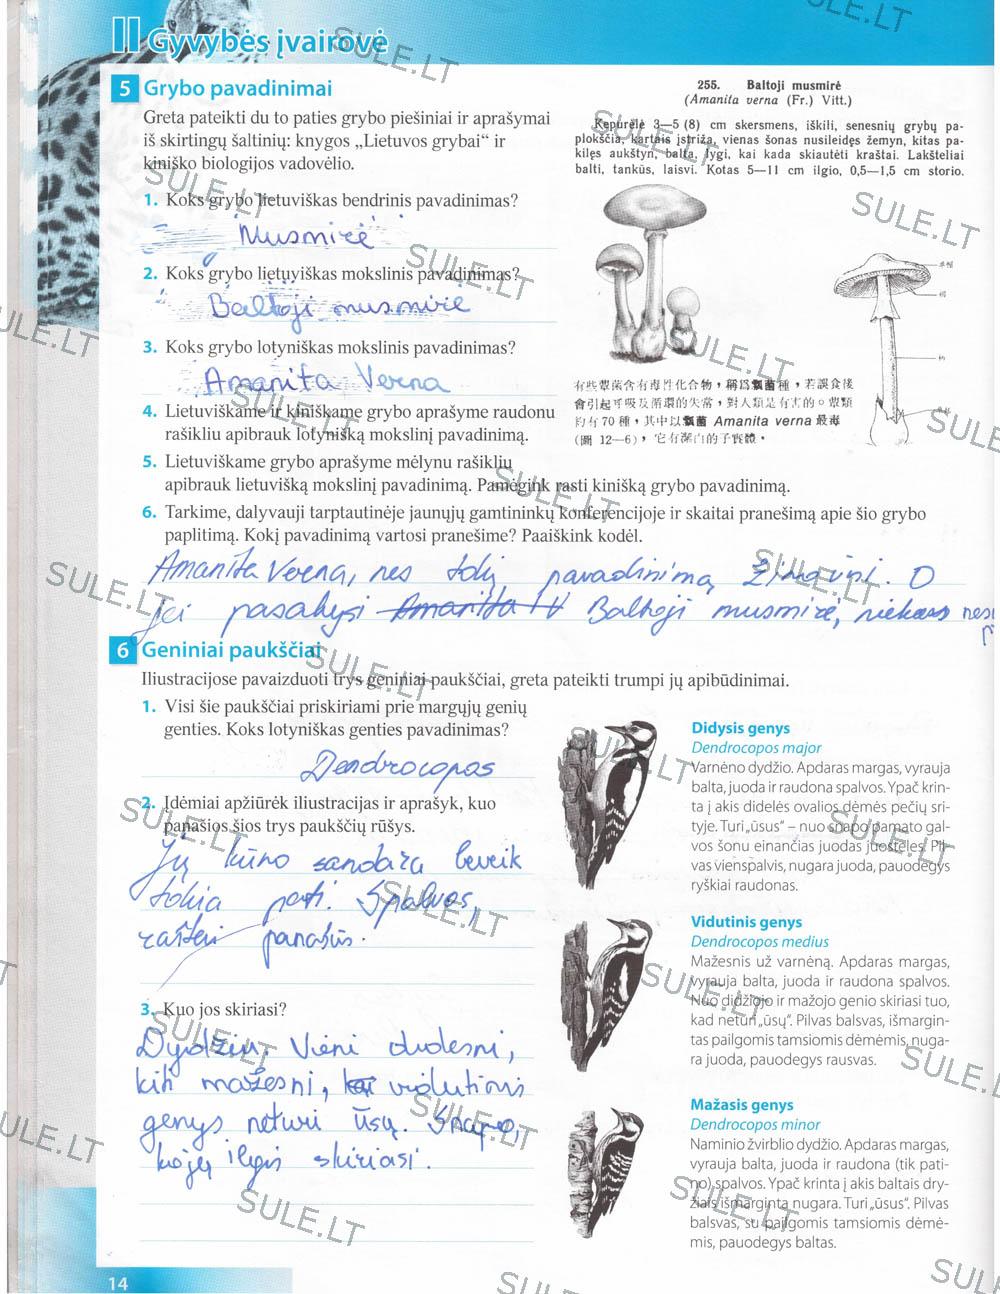 II Gyvybės įvairovė
5 Grybo pavadinimai
Greta pateikti du to paties grybo piešiniai ir aprašymai
iš skirtingų šaltinių: knygos „Lietuvos grybai“ ir
kiniško biologijos vadovėlio.
1. Koks grybo lietuviškas bendrinis pavadinimas?
Musmirė
2. Koks grybo lietuviškas mokslinis pavadinimas?
Baltoji musmirė
3. Koks grybo lotyniškas mokslinis pavadinimas?
Amanita Verna
4. Lietuviškame ir kiniškame grybo aprašyme raudonu
rašikliu apibrauk lotynišką mokslinį pavadinimą.
5. Lietuviškame grybo aprašyme mėlynu rašikliu
apibrauk lietuvišką mokslinį pavadinimą. Pamėgink rasti kinišką grybo pavadinimą.
6. Tarkime, dalyvauji tarptautinėje jaunųjų gamtininkų konferencijoje ir skaitai pranešimą apie šio grybo
paplitimą. Kokį pavadinimą vartosi pranešime? Paaiškink kodėl.
Amanita Verna, nes tokį pavadinimą žino visi. O
jei pasakysi Baltoji musmirė, niekas nesu
p
255. Baltoji musmirė
(Amanita verna (Fr.) Vitt.)
Kepurėlė 3—5 (8) cm skersmens, iškili, senesnių grybų pa-
plokščia, kartais įstriža, vienas šonas nusileidęs žemyn, kitas pa-
kilęs aukštyn, balta, lygi, kai kada skiautėti kraštai. Lakšteliai
balti, tankūs, laisvi. Kotas 5—11 cm ilgio, 0,5—1,5 cm storio.
有些蕈菌含有毒性化合物，稱爲瓢菌種，若誤食後
會引起呼吸及循環的失常，對人類是有害的。蕈類
約有70種，其中以瓢菌 Amanita verna 最毒
(圖 12—6)，它有潔白的子實體。
6 Geniniai paukščiai
Iliustracijose pavaizduoti trys geniniai paukščiai, greta pateikti trumpi jų apibūdinimai.
1. Visi šie paukščiai priskiriami prie margųjų genių
genties. Koks lotyniškas genties pavadinimas?
Dendrocopos
2. Įdėmiai apžiūrėk iliustracijas ir aprašyk, kuo
panašios šios trys paukščių rūšys.
Jų kūno sandara beveik
tokia pati. Spalvos,
raštai panašūs.
3. Kuo jos skiriasi?
Dydžiu. Vieni didesni,
kiti mažesni, vidutinis
genys neturi ūsų. Snapo,
kojų ilgis skiriasi.
Didysis genys
Dendrocopos major
Varnėno dydžio. Apdaras margas, vyrauja
balta, juoda ir raudona spalvos. Ypač krin-
ta į akis didelės ovalios dėmės pečių sri-
tyje. Turi „ūsus“ – nuo snapo pamato gal-
vos šonu einančias juodas juosteles. Pil-
vas vienspalvis, nugara juoda, pauodegys
ryškiai raudonas.
Vidutinis genys
Dendrocopos medius
Mažesnis už varnėną. Apdaras margas,
vyrauja balta, juoda ir raudona spalvos.
Nuo didžiojo ir mažojo genio skiriasi tuo,
kad neturi „ūsų“. Pilvas balsvas, išmargin-
tas pailgomis tamsiomis dėmėmis, nuga-
ra juoda, pauodegys rausvas.
Mažasis genys
Dendrocopos minor
Naminio žvirblio dydžio. Apdaras margas,
vyrauja balta, juoda ir raudona (tik pati-
no) spalvos. Ypač krinta į akis baltais dry-
žiais išmarginta nugara. Turi „ūsus“. Pilvas
balsvas, su pailgomis tamsiomis dėmė-
mis, pauodegys baltas.
14
SULE.LT